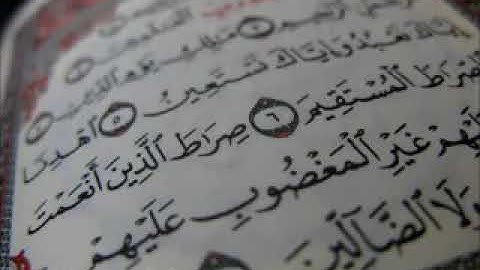 ٱلرَّحِيمِ مَٰلِكِ يَوْمِ ٱلدِّينِ
إِيَّاكَ نَعْبُدُ وَإِيَّاكَ نَسْتَعِينُ ٥ ٱهْدِنَا
ٱلصِّرَاطَ ٱلْمُسْتَقِيمَ ٦ صِرَاطَ ٱلَّذِينَ أَنْعَمْتَ
عَلَيْهِمْ غَيْرِ ٱلْمَغْضُوبِ عَلَيْهِمْ
وَلَا ٱلضَّآلِّينَ